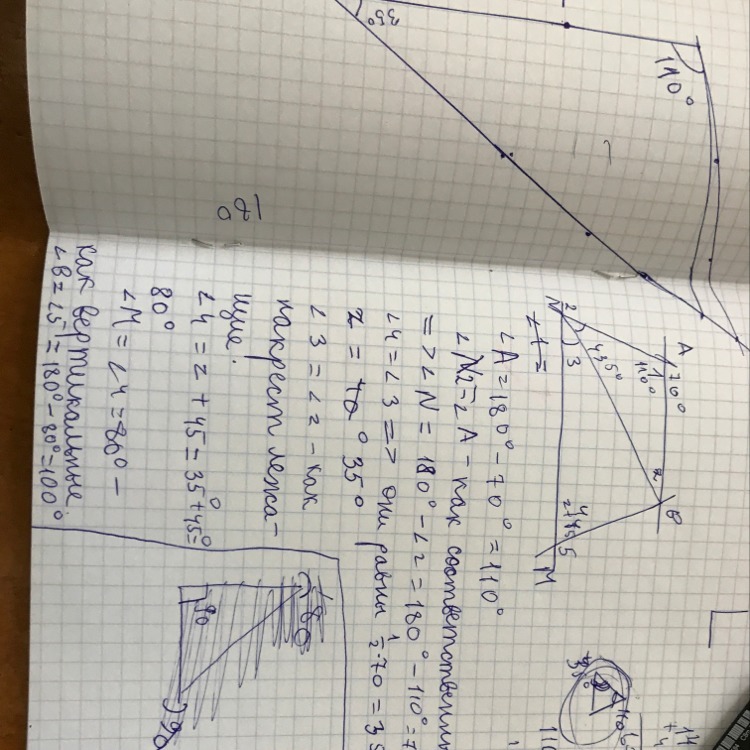 35°
110°
180
A
70°
1
110°
2
N
4,35°
3
z
B
4
z+45
5
M
∠A = 180° - 70° = 110°
∠N2 = ∠A - как соответственны
=> ∠N = 180° - ∠2 = 180° - 110° = 7
∠4 = ∠3 => они равны 1/2·70 = 35
z = 35°
∠3 = ∠z - как
накрест лежа-
щие.
∠4 = z + 45 = 35° + 45° =
80°
∠M = ∠4 = 80° -
как вертикальные.
∠B = ∠5 = 180° - 80° = 100°
90